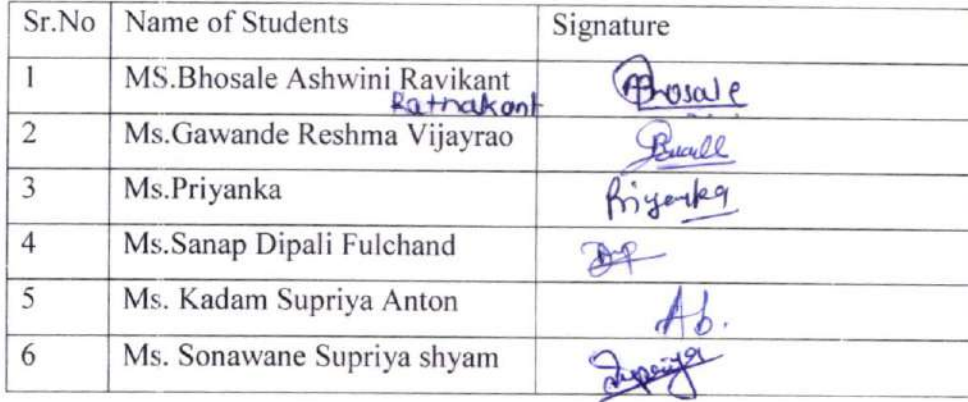 Sr.No Name of Students Signature
1 MS.Bhosale Ashwini Ravikant Bhosale
Ratnakant
2 Ms.Gawande Reshma Vijayrao
3 Ms.Priyanka Priyanka
4 Ms.Sanap Dipali Fulchand
5 Ms. Kadam Supriya Anton Ab.
6 Ms. Sonawane Supriya shyam Supriya